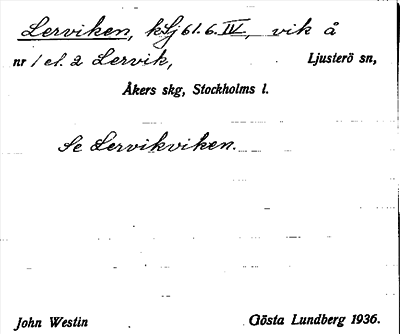 Lerviken, kLj 61.6.IV, vik å
nr 1 el. 2 Lervik, Ljusterö sn,
Åkers skg, Stockholms l.
Se Lervikviken.
John Westin Gösta Lundberg 1936.